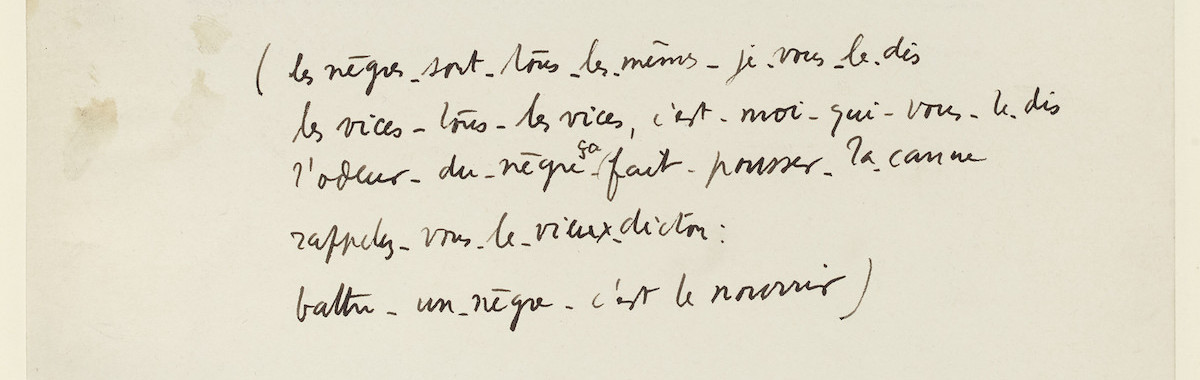 (les nègres-sont-tous-les-mêmes-je-vous-le-dis
les vices-tous-les vices, c'est-moi-qui-vous-le-dis
l'odeur-du-nègre-ça fait-pousser-la canne
rappelez-vous-le-vieux-dicton:
battre-un-nègre-c'est le nourrir)